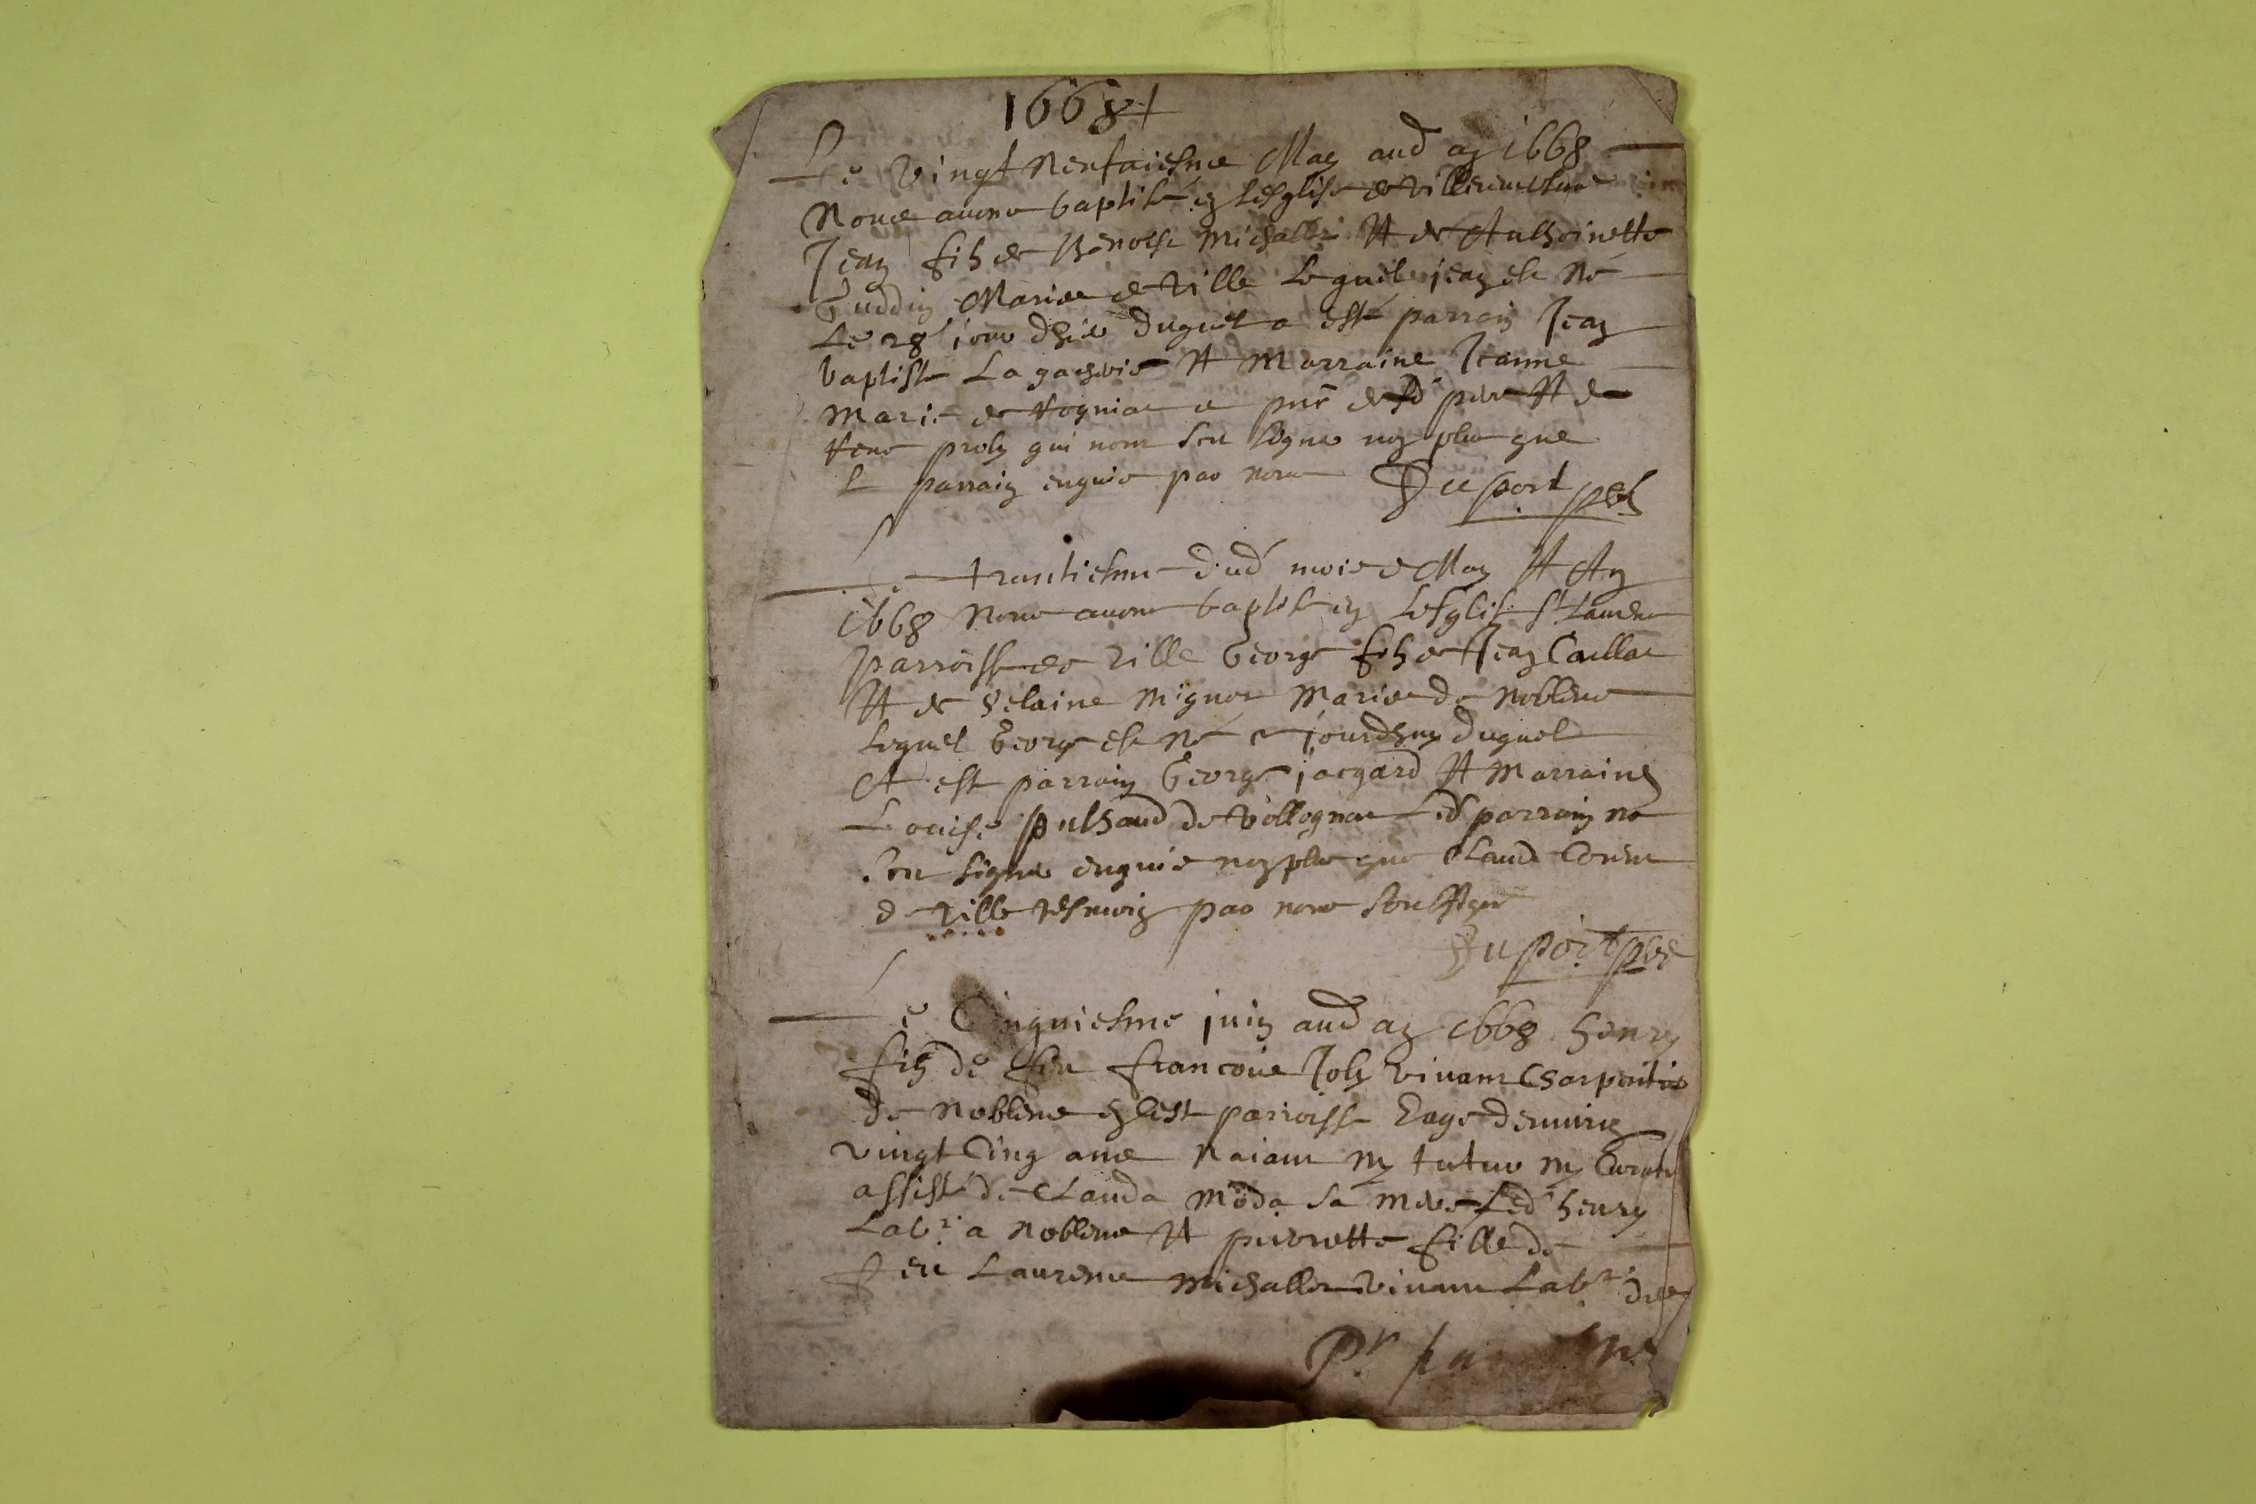 1668
Le vingt neufaiesme May aud an 1668
Nous avons baptisé en lesglise de
Jean fils de Benoist Michallet Et de Anthoinette
Guddin Mariés de Ville lequel jean est né
Le 28 jour dhier duquel a esté parrain Jean
baptiste Et Marraine Jeanne
Marie de a pnt dud pere Et de
qui nont sceu signer non plus que
L parrain enquis par nous Duport pbr
Le trantiesme dud mois de May Et An
1668 Nous avons baptisé en lesglise St Laurent
parroisse de Ville George fils de Jean Caillat
Et de helaine Mignot Mariés de Noblens
lequel George est né ce jourdhuy duquel
A esté parrain George jacgard Et Marraine
Louise puthaud de Vollognat led parrain na
sceu signer enquis non plus que Claude
de Ville tesmoin par nous soubsigné
Duport pbr
Le Cinquiesme juin aud an 1668 henry
fils de feu francois Joly vivant charpentier
de Noblens en cest parroisse Eagé denviron
vingt Cinq ans Naiant ny tuteur ny Curateur
assisté de Clauda Moda sa mere Led henry
Labr a Noblens Et pierrette fille de
feu Laurens Michallet vivant Labr de
Pr